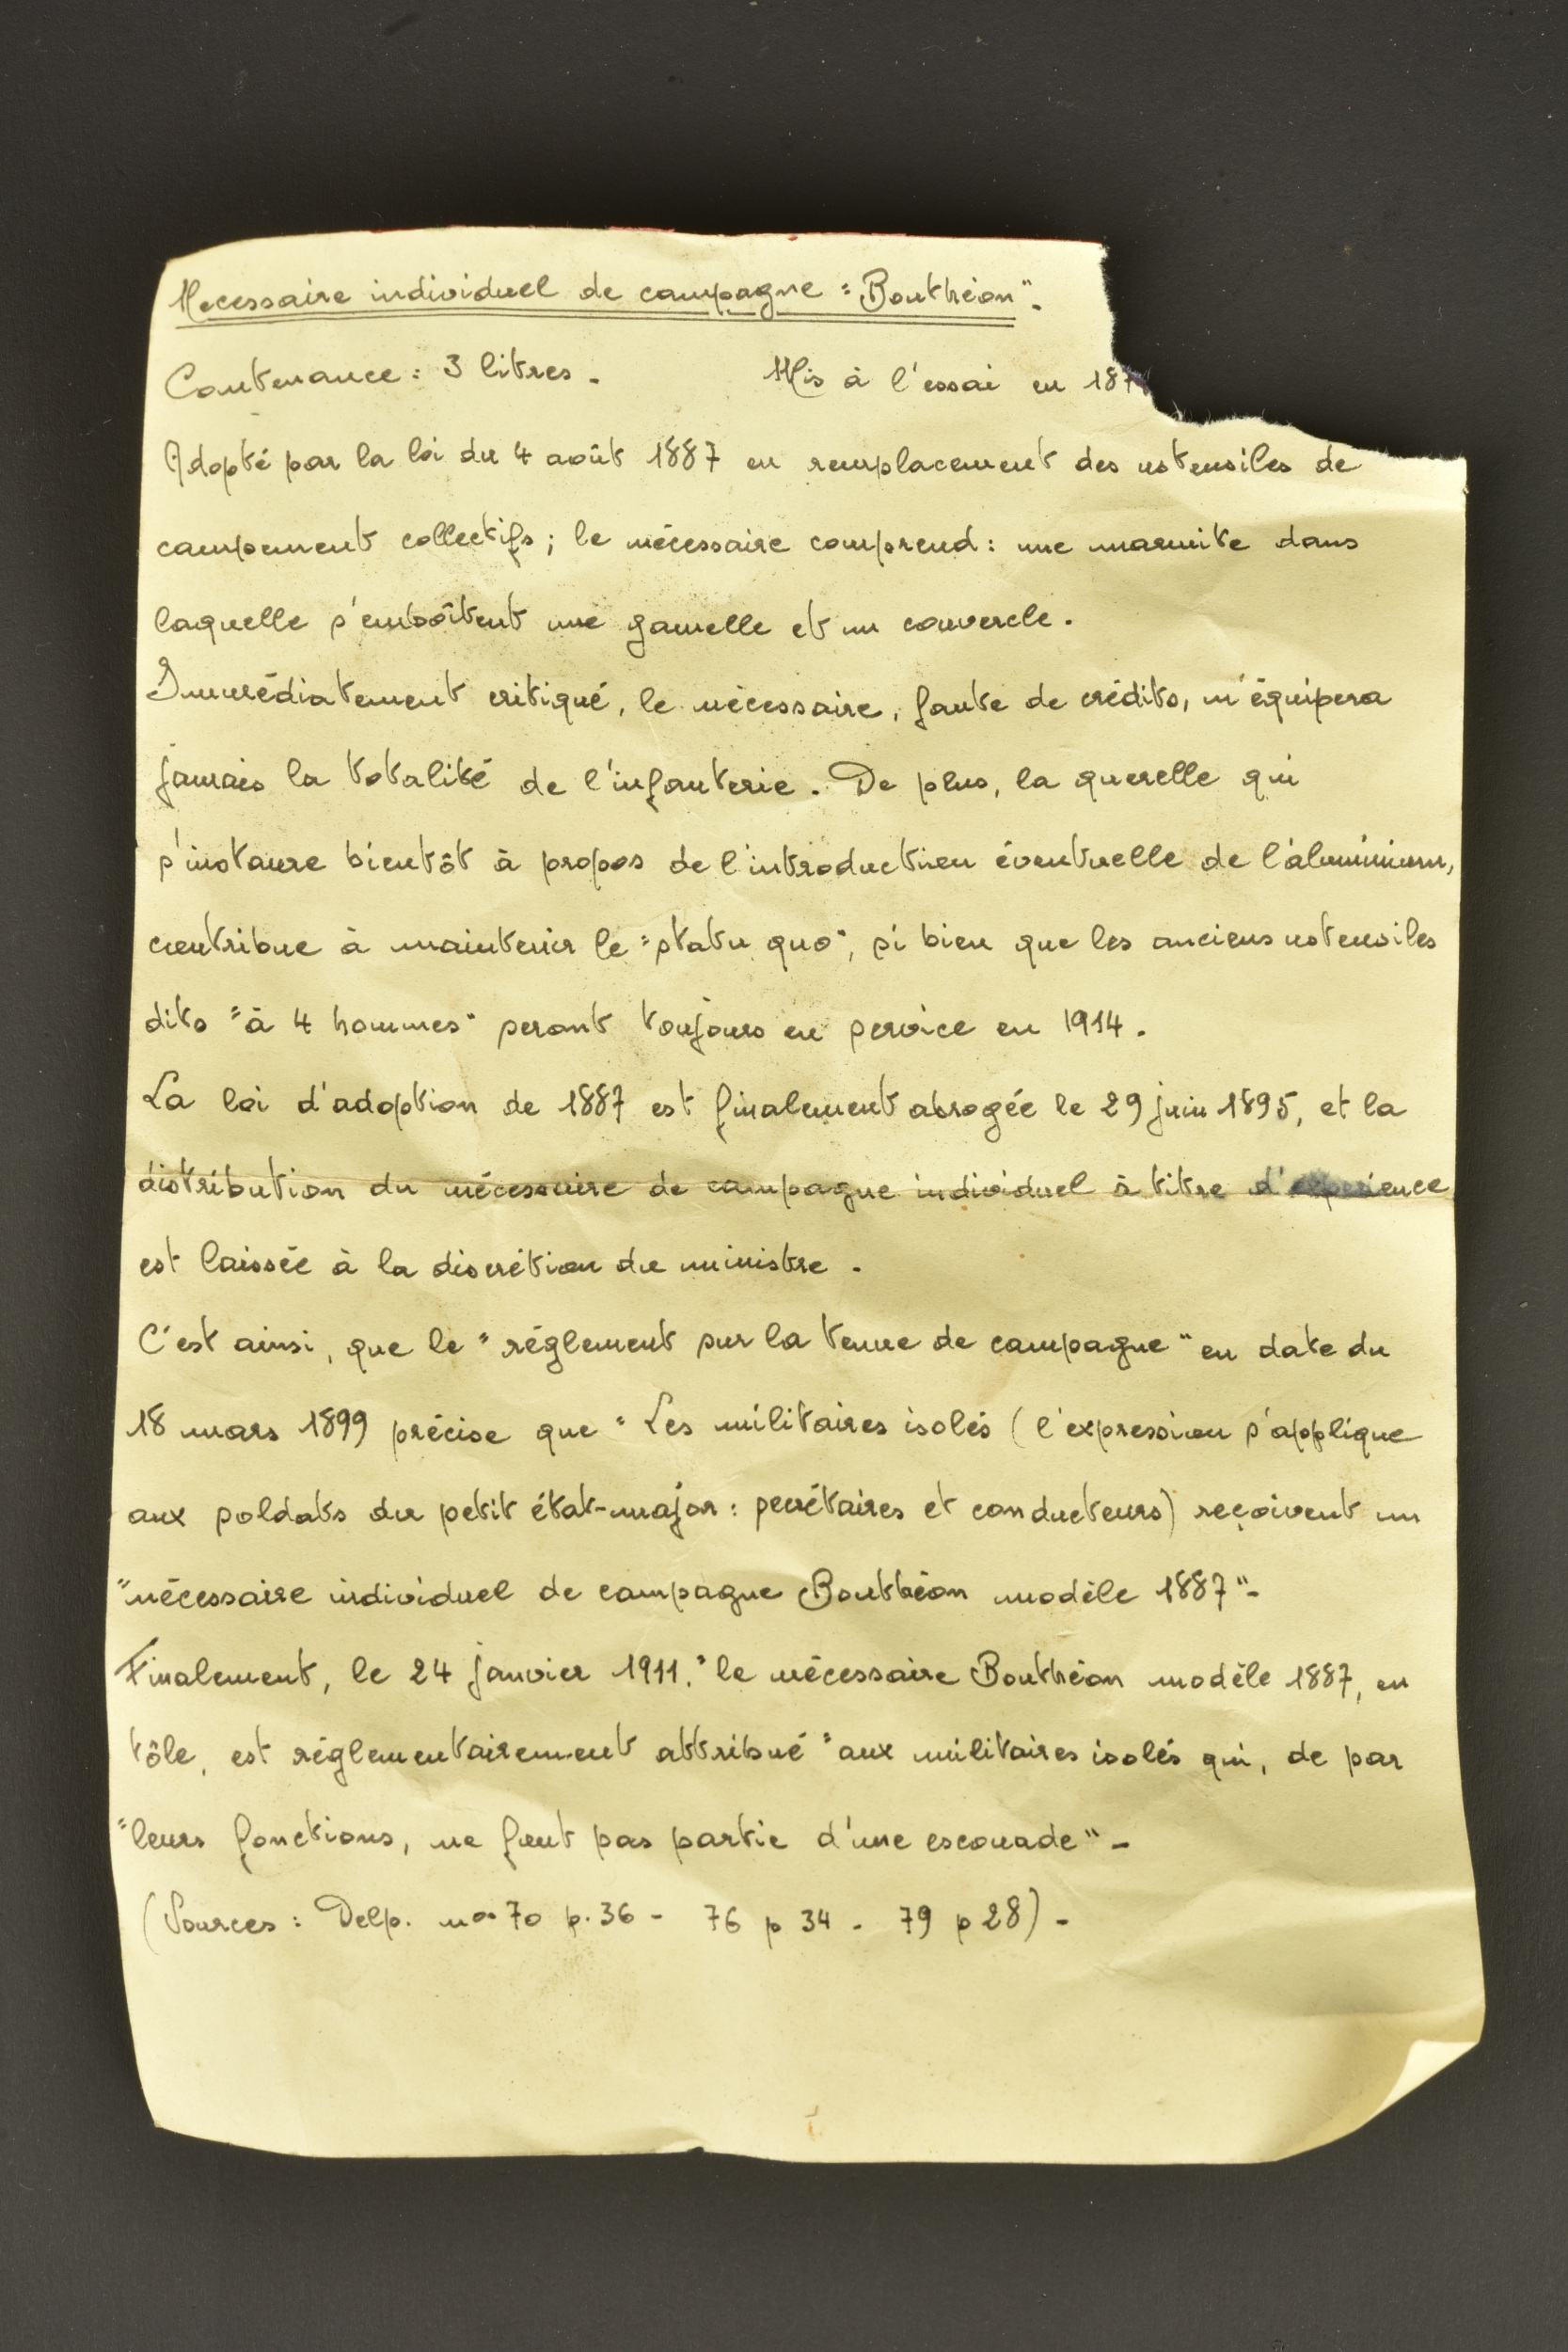 Necessaire individuel de campagne "Bouthéon".
Contenance : 3 litres. Mis à l'essai en 187
Adopté par la loi du 4 août 1887 en remplacement des ustensiles de
campement collectifs ; le nécessaire comprend : une marmite dans
laquelle s'emboîtent une gamelle et un couvercle.
Immédiatement critiqué, le nécessaire, faute de crédits, n'équipera
jamais la totalité de l'infanterie. De plus, la querelle qui
s'instaure bientôt à propos de l'introduction éventuelle de l'aluminium,
contribue à maintenir le "statu quo", si bien que les anciens ustensiles
dits "à 4 hommes" seront toujours en service en 1914.
La loi d'adoption de 1887 est finalement abrogée le 29 juin 1895, et la
distribution du nécessaire de campagne individuel à titre d'expérience
est laissée à la discrétion du ministre.
C'est ainsi, que le "réglement sur la tenue de campagne" en date du
18 mars 1899 précise que "Les militaires isolés (l'expression s'applique
aux soldats du petit état-major : secrétaires et conducteurs) reçoivent un
"nécessaire individuel de campagne Bouthéon modèle 1887"-
Finalement, le 24 janvier 1911, "le nécessaire Bouthéon modèle 1887, en
tôle, est réglementairement attribué "aux militaires isolés qui, de par
"leurs fonctions, ne font pas partie d'une escouade"-
(Sources : Delp. nos 70 p. 36 - 76 p 34 - 79 p 28)-